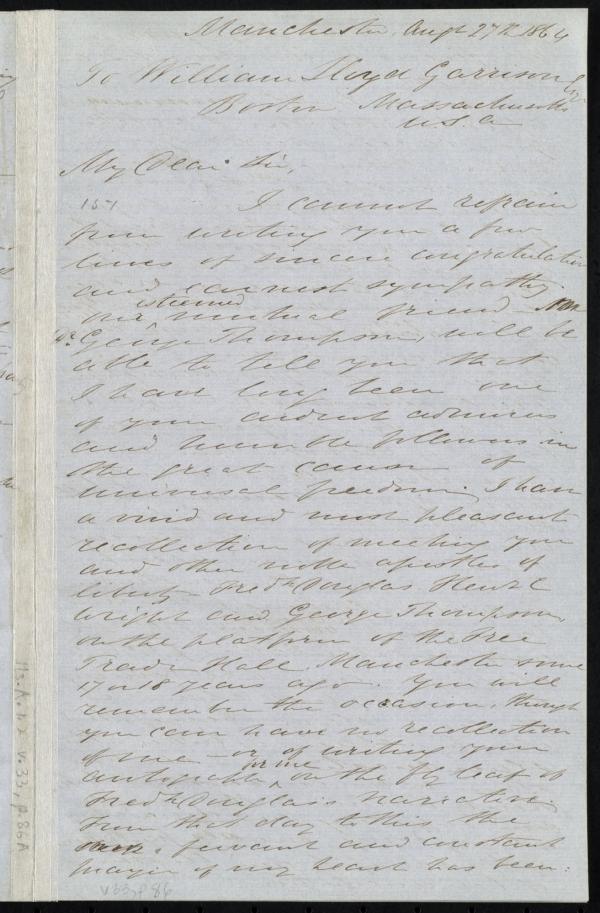 Manchester, Augt 27th 1864
To William Lloyd Garrison Esq
Boston Massachusetts
U.S.a
My Dear Sir,
151 I cannot refrain
from writing you a few
lines of sincere congratulation
and earnest sympathy.
our esteemed mutual friend
George Thompson, will be
able to tell you that
I have long been one
of your ardent admirers
and humble followers in
the great cause of
universal freedom. I have
a vivid and most pleasant
recollection of meeting you
and other noble apostles of
liberty Fredk Douglas Henry C
Wright and George Thompson,
on the platform of the Free
Trade Hall, Manchester some
17 or 18 years ago. You will
remember the occasion, though
you can have no recollection
of me – or of writing your
autograph for me on the fly leaf of
Fredk Douglass narrative.
From that day to this the
fervent and constant
prayer of my heart has been:
v.33, p.86
Ms.A.1.2 v.33, p.86A